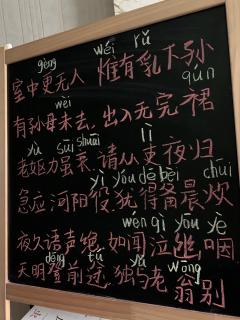 gèng wéi rǔ
室中更无人 惟有乳下孙
wèi qún
有孙母未去,出入无完裙
yù suī shuāi lì
老妪力虽衰 请从吏夜归
yì yóu dé bèi chuī
急应河阳役 犹得备晨炊
wén qì yōu yè
夜久语声绝 如闻泣幽咽
dēng tú yǔ wōng
天明登前途 独与老翁别